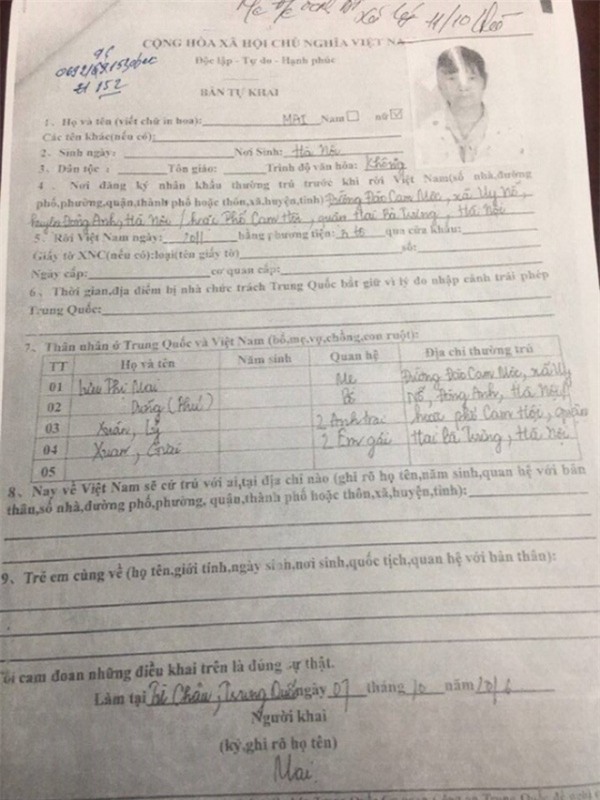 11/10
CỘNG HÒA XÃ HỘI CHỦ NGHĨA VIỆT NA
Độc lập - Tự do - Hạnh phúc
152
BẢN TỰ KHAI
1. Họ và tên (viết chữ in hoa): MAI Nam☐ nữ☑
Các tên khác(nếu có):
2. Sinh ngày: Nơi Sinh: Hà Nội
3. Dân tộc : Tôn giáo: Trình độ văn hóa: Không
4 . Nơi đăng ký nhân khẩu thường trú trước khi rời Việt Nam(số nhà,đường
phố,phường,quận,thành phố hoặc thôn,xã,huyện,tỉnh) Đường Đào Cam Mộc, xã Uy Nỗ,
huyện Đông Anh, Hà Nội / hoặc Phố Cam Hội, quận Hai Bà Trưng, Hà Nội
5. Rời Việt Nam ngày: 2011 bằng phương tiện: ô tô qua cửa khẩu:
Giấy tờ XNC(nếu có):loại(tên giấy tờ) số:
Ngày cấp: cơ quan cấp:
6、Thời gian,địa điểm bị nhà chức trách Trung Quốc bắt giữ vì lý do nhập cảnh trái phép
Trung Quốc:
7、Thân nhân ở Trung Quốc và Việt Nam (bố,mẹ,vợ,chồng,con ruột):
TT Họ và tên Năm sinh Quan hệ Địa chỉ thường trú
01 Lưu Phi Mai Mẹ Đường Đào Cam Mộc, xã Uy
02 Dũng (Phú) Bố Nỗ, Đông Anh, Hà Nội
03 Xuân, Lý 2 Anh trai hoặc phố Cam Hội, quận
04 Xuan, 2 Em gái Hai Bà Trưng, Hà Nội
05
8、Nay về Việt Nam sẽ cư trú với ai,tại địa chỉ nào (ghi rõ họ tên,năm sinh,quan hệ với bản
thân,số nhà,đường phố,phường, quận,thành phố hoặc thôn,xã,huyện,tỉnh):
9、Trẻ em cùng về (họ tên,giới tính,ngày sinh,nơi sinh,quốc tịch,quan hệ với bản thân):
Tôi cam đoan những điều khai trên là đúng sự thật.
Làm tại Châu, Trung Quốc ngày 07 tháng 10 năm 2016
Người khai
(ký,ghi rõ họ tên)
Mai